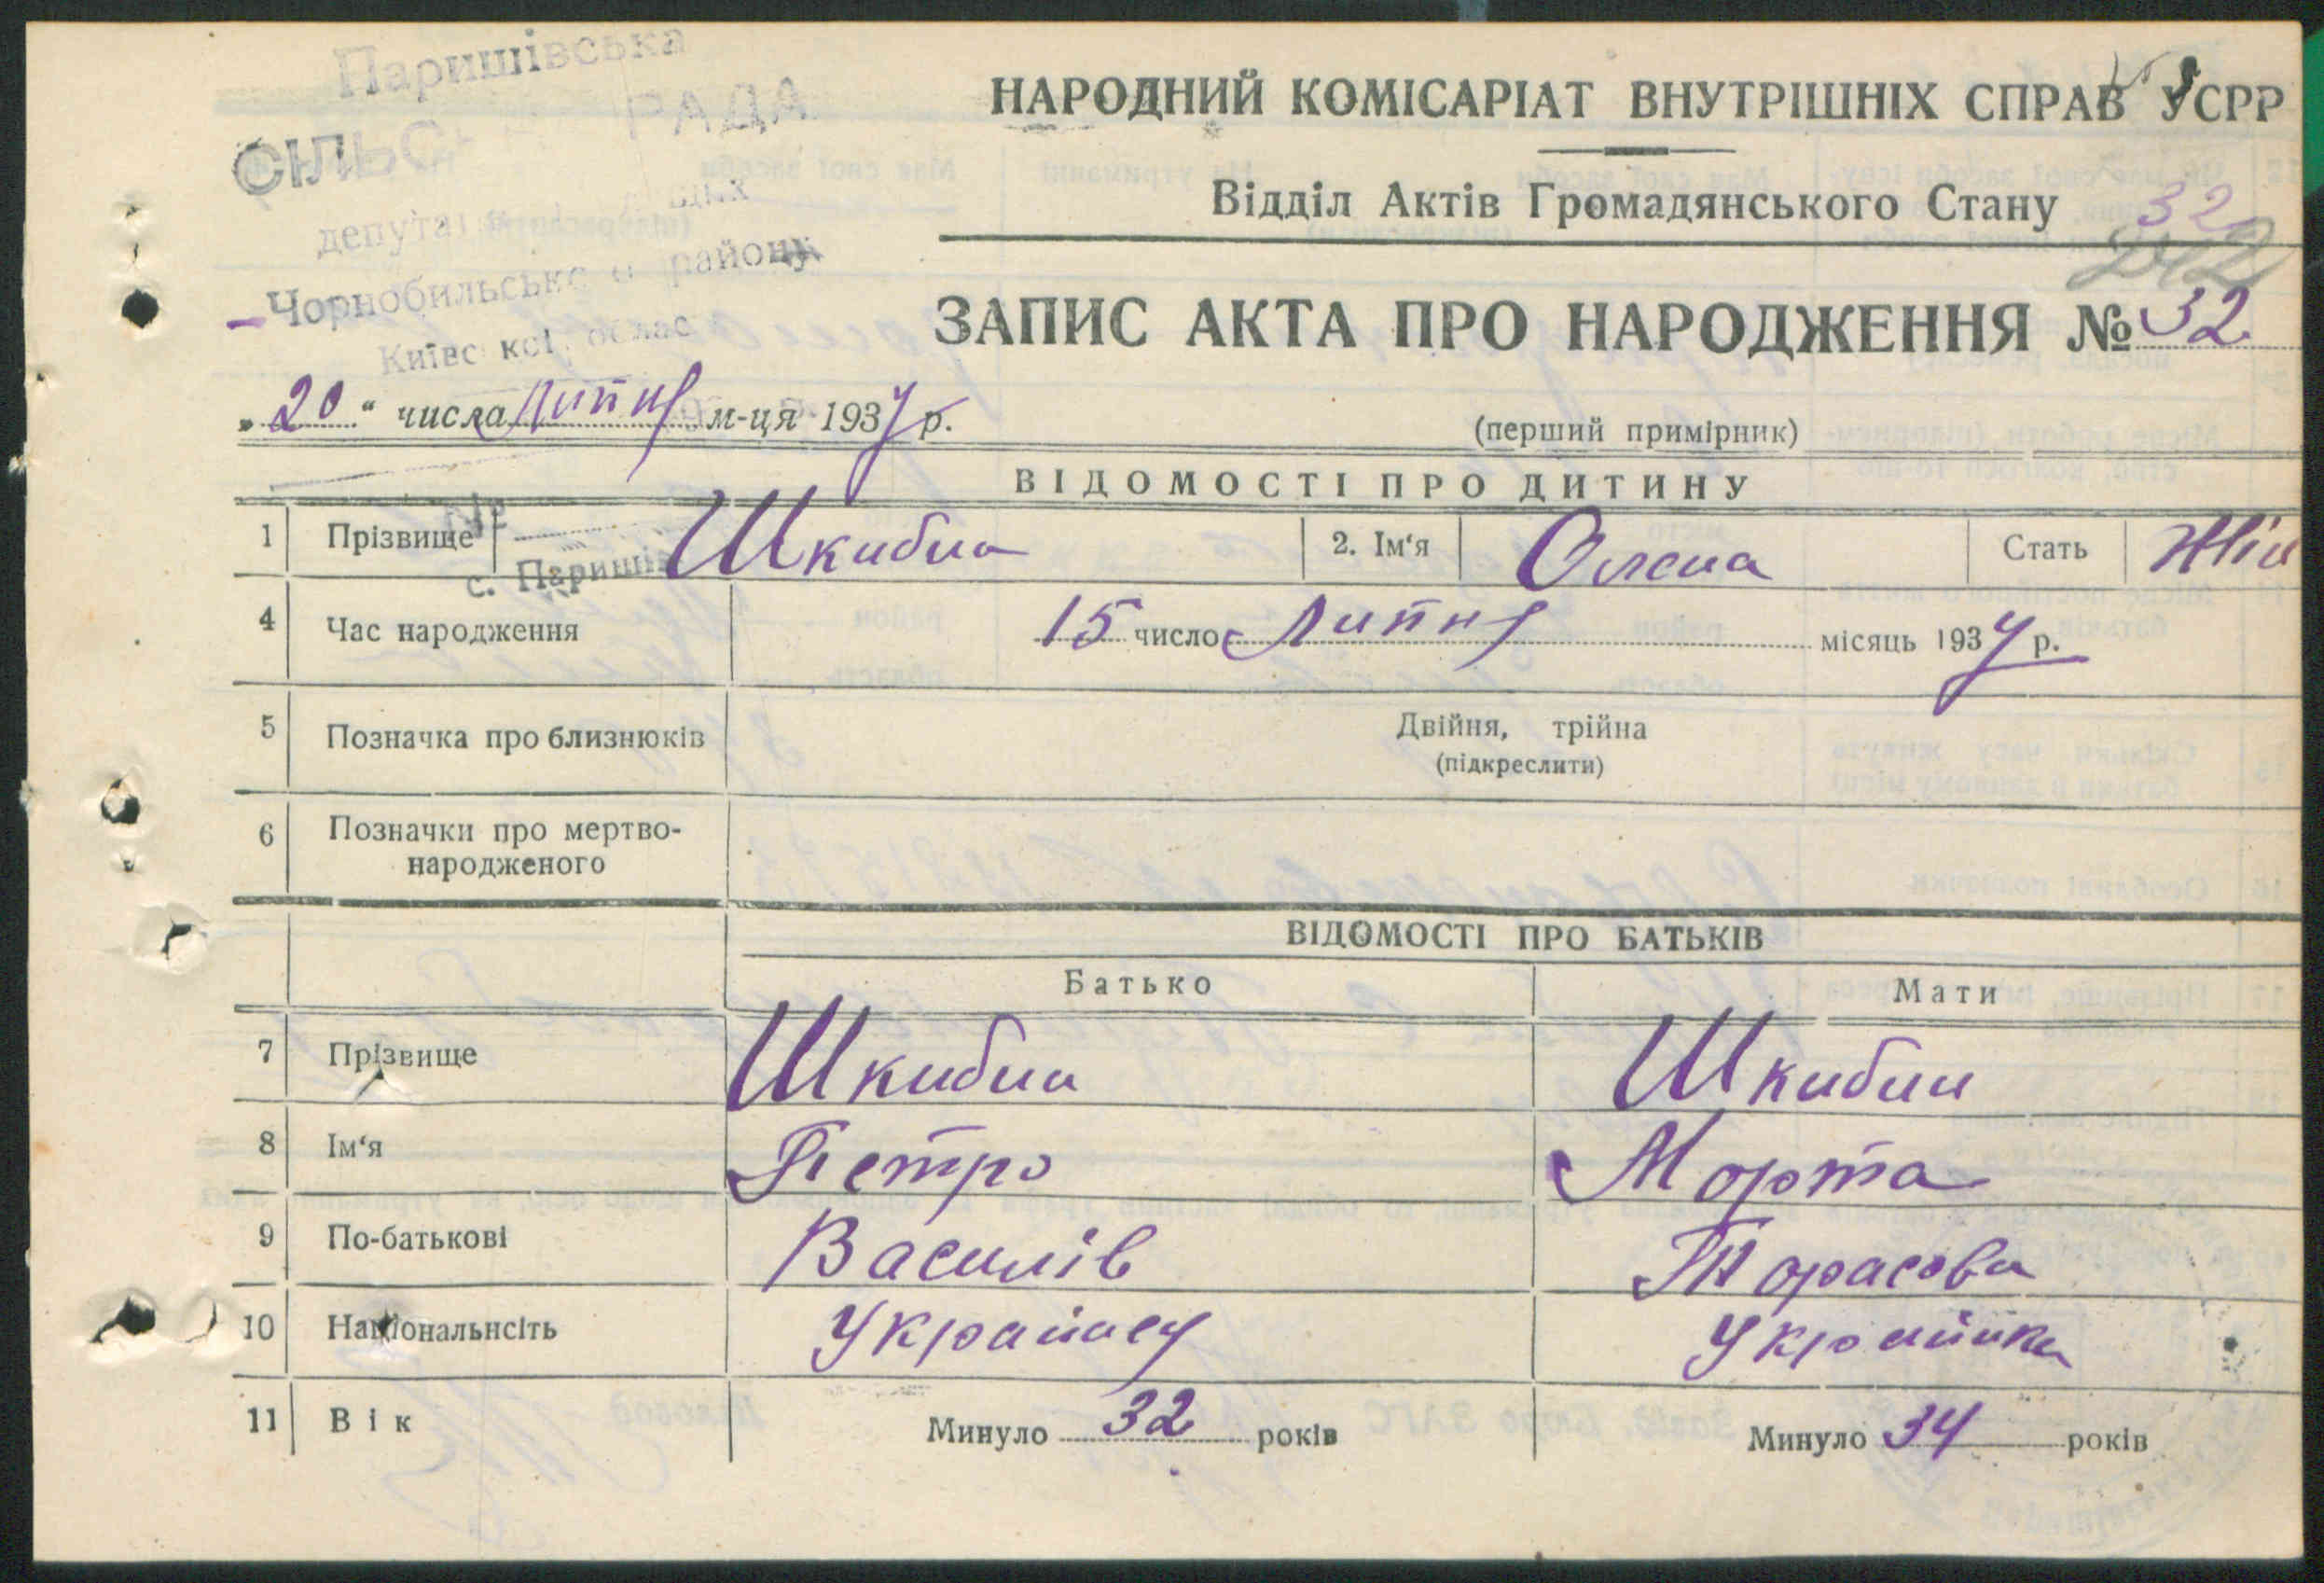 Паришівська
СІЛЬС РАДА
депутат
Чорнобильсько району
Київс кої облас
НАРОДНИЙ КОМІСАРІАТ ВНУТРІШНІХ СПРАВ УСРР
Відділ Актів Громадянського Стану
32
ЗАПИС АКТА ПРО НАРОДЖЕННЯ № 32
„20“ числа Липня м-ця 1937 р.
(перший примірник)
ВІДОМОСТІ ПРО ДИТИНУ
1 Прізвище Шкибна 2. Ім‘я Олена Стать Жін
с. Париші
4 Час народження 15 число Липня місяць 1937 р.
5 Позначка про близнюків Двійня, трійна
(підкреслити)
6 Позначки про мертво-
народженого
ВІДОМОСТІ ПРО БАТЬКІВ
Батько Мати
7 Прізвище Шкибна Шкибна
8 Ім‘я Петро Морта
9 По-батькові Василів Торасова
10 Національнсіть Українец Українка
11 Вік Минуло 32 років Минуло 34 років